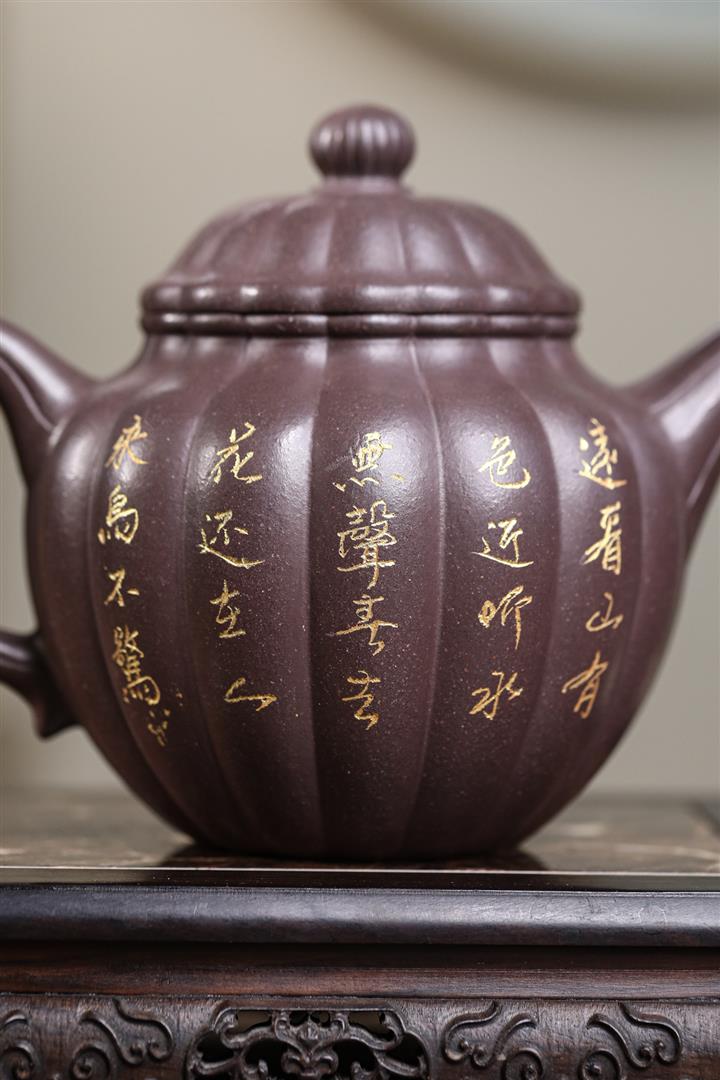 遠看山有
色近听水
無聲春去
花还在人
来鳥不驚